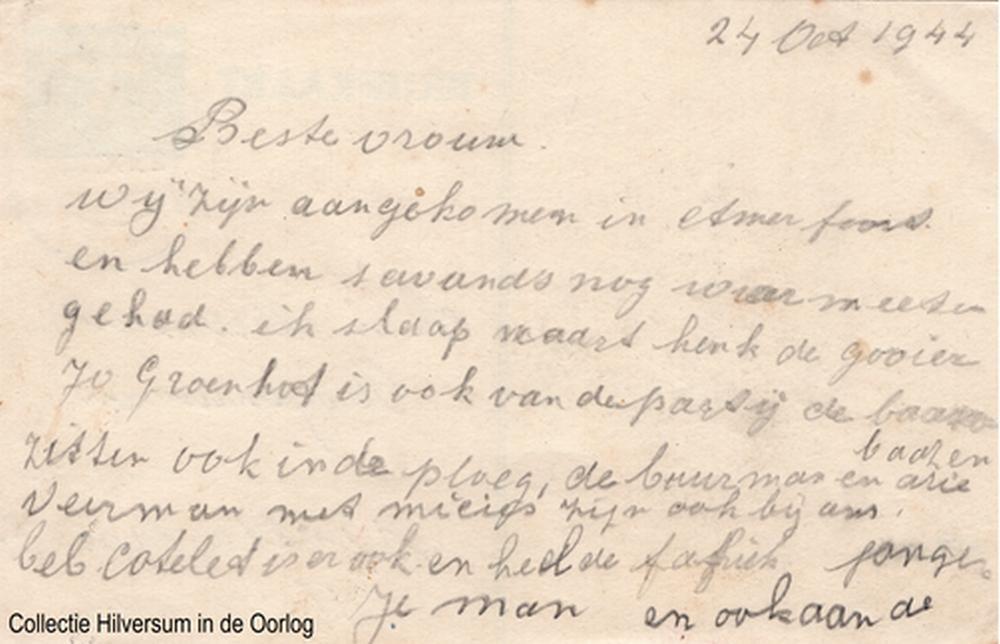 24 Oct 1944
Beste vrouw.
wij zijn aangekomen in Amerfoort.
en hebben savands nog warm eeten
gehad. ik slaap naast henk de gooier
Jo Groenhof is ook van de partij de
bazen
zitten ook in de ploeg, de buurman en arie
Veerman met micies zijn ook bij ons.
beb Cotelet is er ook en heel de fabriek jonge
Je man en ook aan de
Collectie Hilversum in de Oorlog